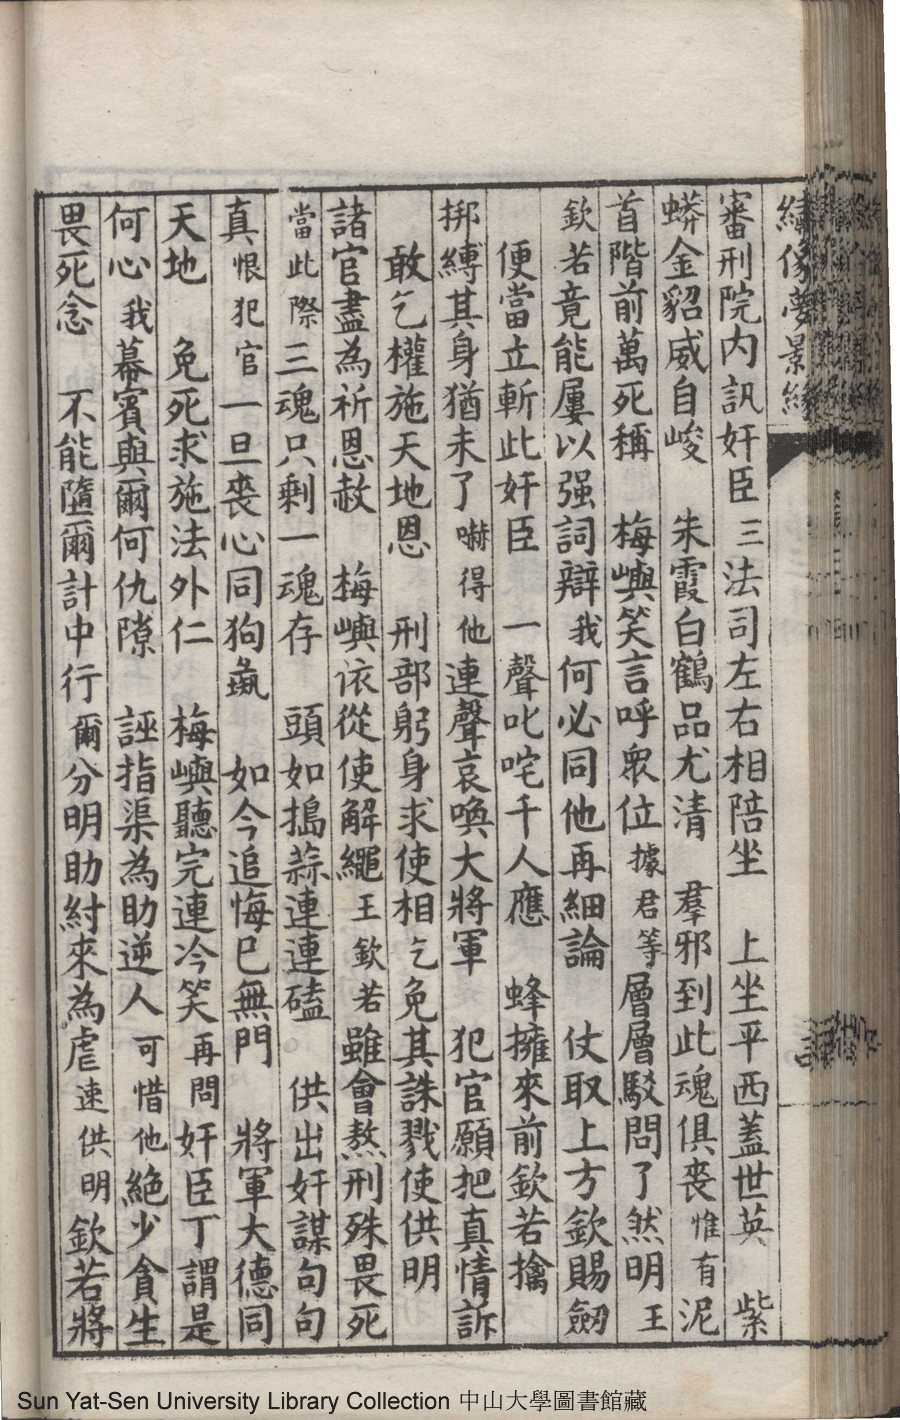 繡像夢景緣
審刑院內訊奸臣三法司左右相陪坐 上坐平西蓋世英 紫
蟒金貂威自峻 朱霞白鶴品尤清 羣邪到此魂俱喪惟有泥
首階前萬死稱 梅嶼笑言呼衆位據君等層層駁問了然明王
欽若竟能屢以强詞辯我何必同他再細論 仗取上方欽賜劒
便當立斬此奸臣 一聲叱咤千人應 蜂擁來前欽若擒
挷縛其身猶未了嚇得他連聲哀喚大將軍 犯官願把真情訴
敢乞權施天地恩 刑部躬身求使相乞免其誅戮使供明
諸官盡為祈恩赦 梅嶼依從使解繩王欽若雖會熬刑殊畏死
當此際三魂只剩一魂存 頭如搗蒜連連磕 供出奸謀句句
真恨犯官一旦喪心同狗彘 如今追悔已無門 將軍大德同
天地 免死求施法外仁 梅嶼聽完連冷笑再問奸臣丁謂是
何心我幕賓與爾何仇隙 誣指渠為助逆人可惜他絕少貪生
畏死念 不能隨爾計中行爾分明助紂來為虐速供明欽若將
Sun Yat-Sen University Library Collection 中山大學圖書館藏